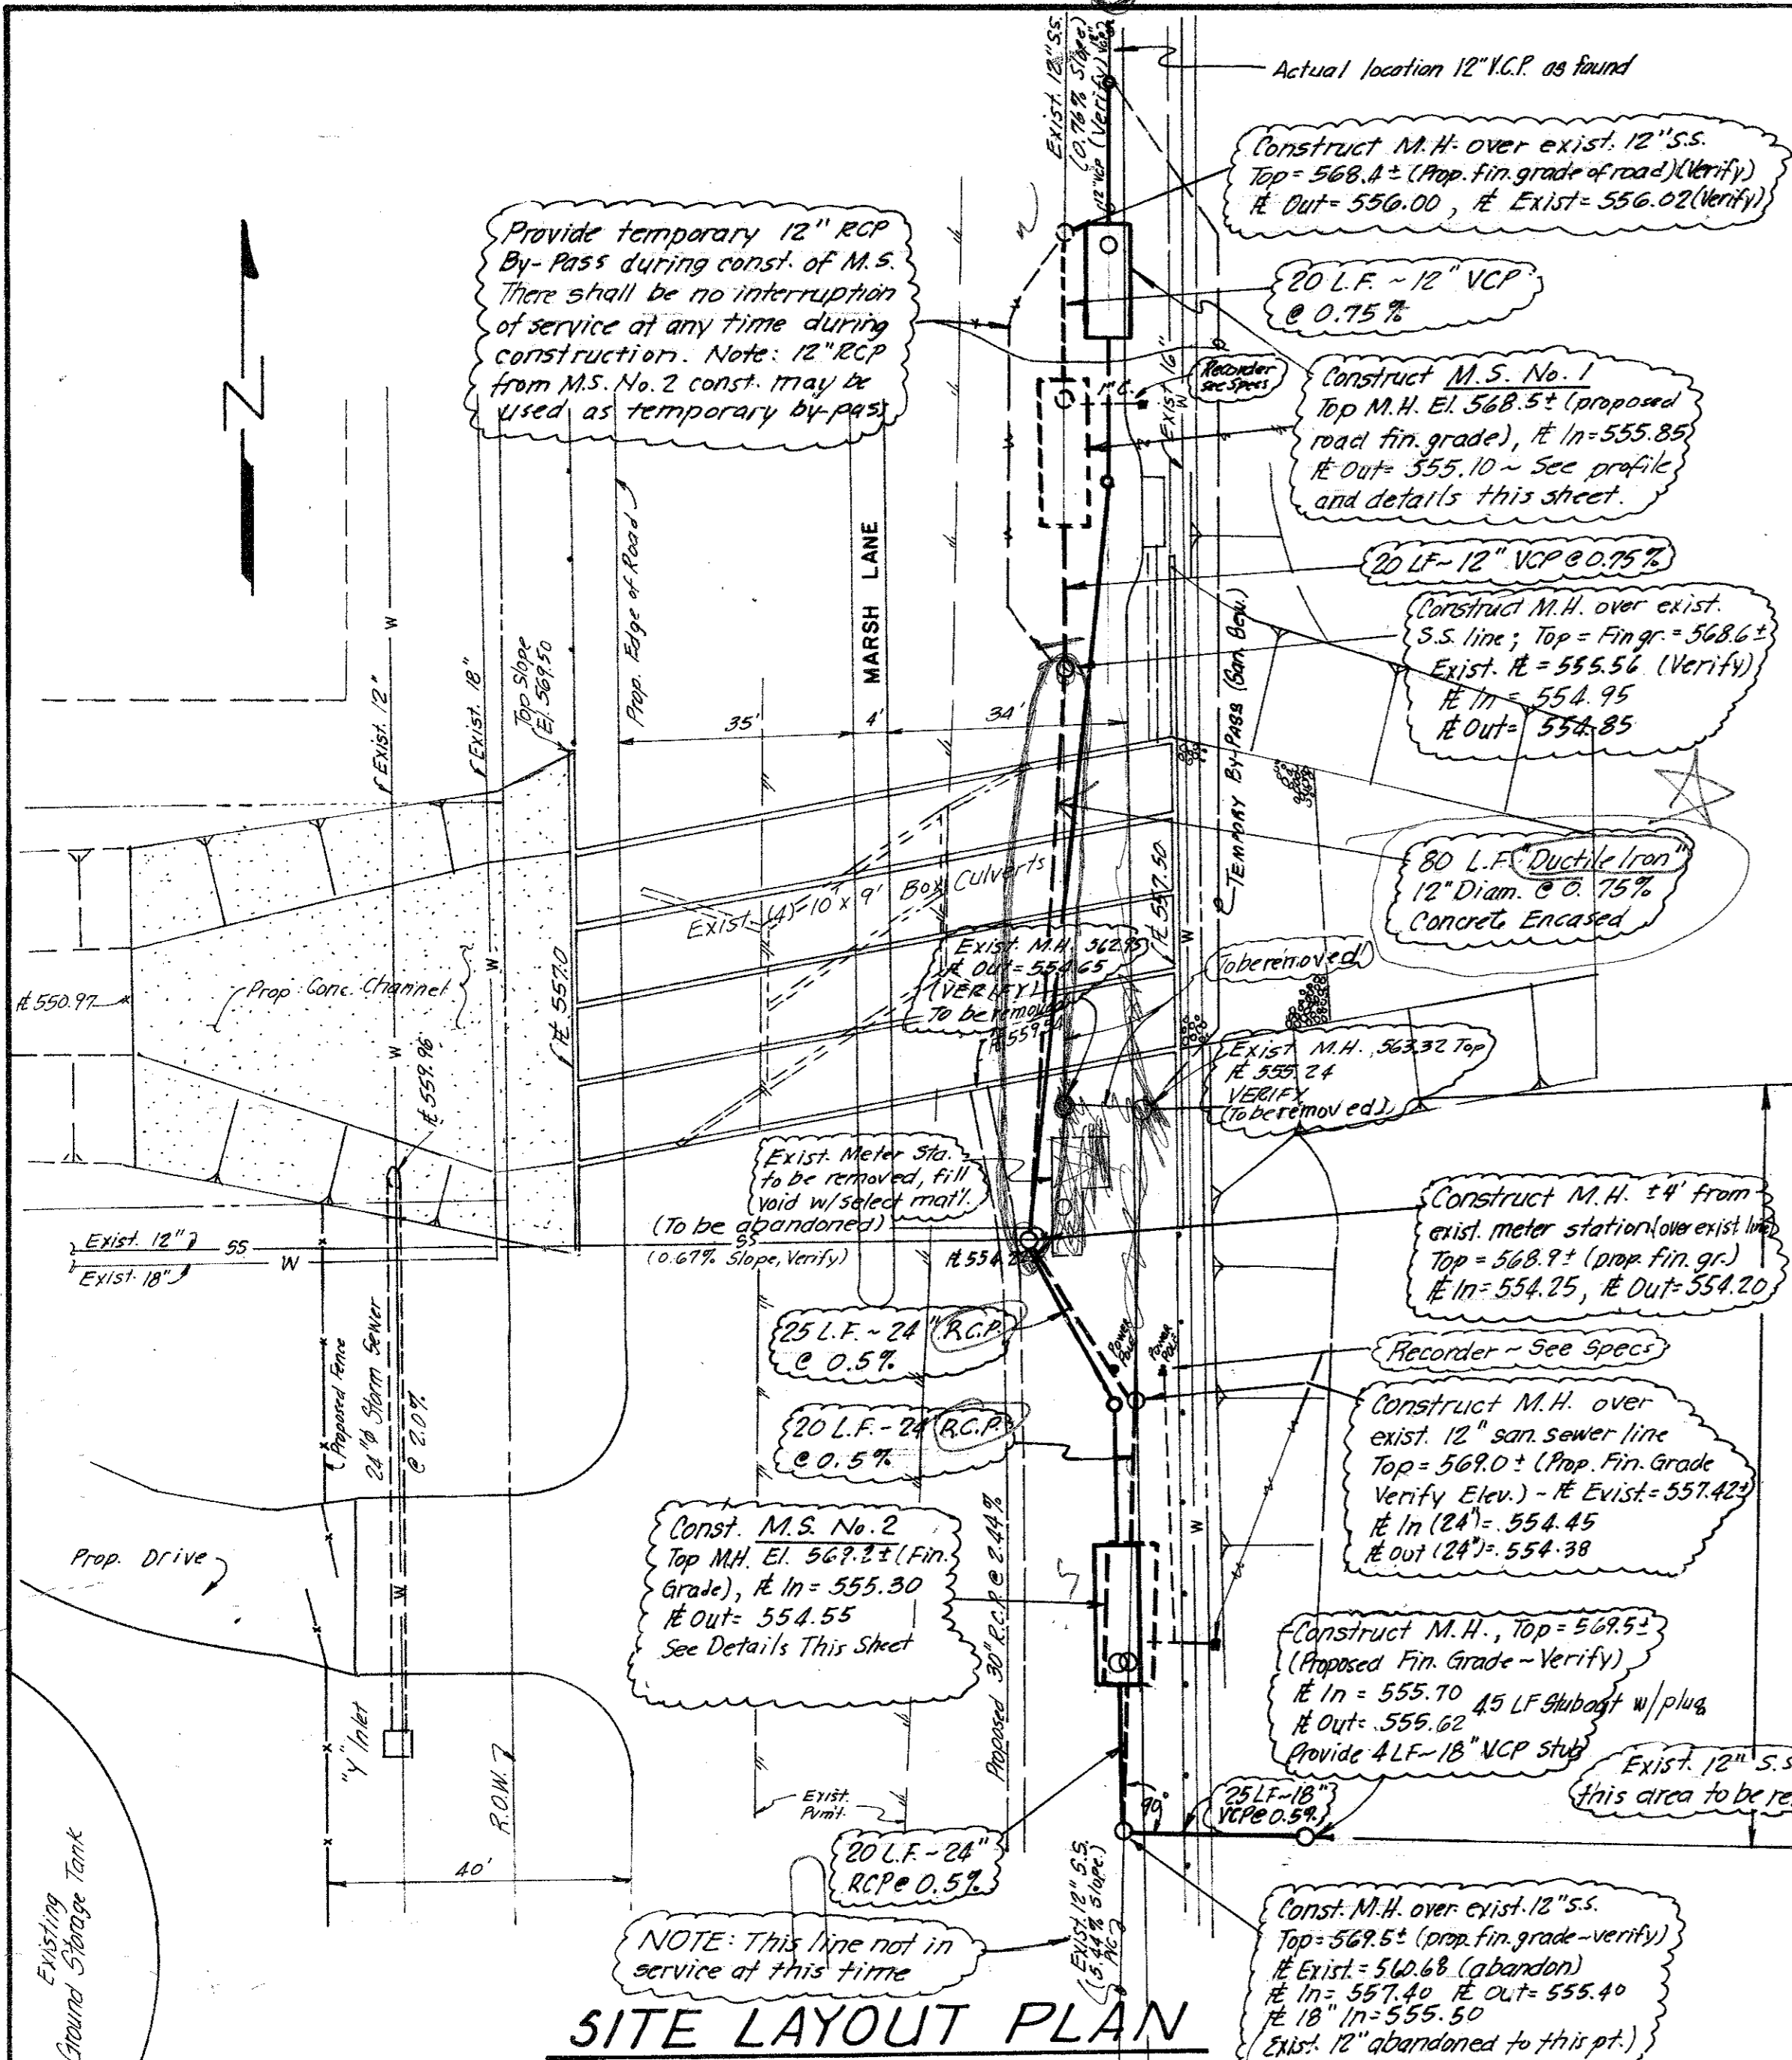 Exist. 12" S.S.
(0.76% Slope)
(Verify)
12" VCP
Actual location 12" V.C.P. as found
Construct M.H. over exist. 12" S.S.
Top = 568.4± (Prop. fin. grade of road) (Verify)
℄ Out = 556.00 , ℄ Exist = 556.02 (Verify)
Provide temporary 12" RCP
By-Pass during const. of M.S.
There shall be no interruption
of service at any time during
construction. Note: 12" RCP
from M.S. No. 2 const. may be
used as temporary by-pass
20 L.F. ~ 12" VCP
@ 0.75%
Recorder
see Specs
1" C.
Exist 16"
W
Construct M.S. No. 1
Top M.H. El. 568.5± (proposed
road fin. grade), ℄ In = 555.85
℄ Out = 555.10 ~ See profile
and details this sheet.
20 LF ~ 12" VCP @ 0.75%
Construct M.H. over exist.
S.S. line ; Top = Fin gr. = 568.6±
Exist. ℄ = 555.56 (Verify)
℄ In = 554.95
℄ Out = 554.85
N
W
Exist. 12"
Exist. 18"
Top Slope
El. 569.50
Prop. Edge of Road
MARSH LANE
35'
4'
34'
TEMPORY BY-PASS (San. Sew.)
80 L.F. "Ductile Iron"
12" Diam. @ 0.75%
Concrete Encased
Exist. (4)-10' x 9' Box Culverts
℄ 557.50
℄ 557.0
W
W
Exist. M.H. 562.95
℄ Out = 554.65
(VERIFY)
To be removed
℄ 559.54
To be removed
℄ 550.97
Prop. Conc. Channel
W
℄ 559.96
Exist M.H. 563.32 Top
℄ 555.24
VERIFY
(To be removed)
Exist. Meter Sta.
to be removed, fill
void w/select mat'l.
(To be abandoned)
SS
(0.67% Slope, Verify)
Exist. 12"
SS
W
Exist. 18"
Construct M.H. ±4' from
exist. meter station (over exist line)
Top = 568.9± (prop. fin. gr.)
℄ In = 554.25, ℄ Out = 554.20
25 L.F. ~ 24" R.C.P.
@ 0.5%
Power
Pole
Power
Pole
Recorder ~ See Specs
Proposed Fence
24"ϕ Storm Sewer
@ 2.0%
20 L.F. - 24 R.C.P.
@ 0.5%
Construct M.H. over
exist. 12" san. sewer line
Top = 569.0± (Prop. Fin. Grade
Verify Elev.) - ℄ Exist = 557.42±
℄ In (24") = 554.45
℄ Out (24") = 554.38
Const. M.S. No. 2
Top M.H. El. 569.2± (Fin.
Grade), ℄ In = 555.30
℄ Out = 554.55
See Details This Sheet
Proposed 30" R.C.P. @ 2.44%
W
Prop. Drive
W
Construct M.H., Top = 569.5±
(Proposed Fin. Grade ~ Verify)
℄ In = 555.70
℄ Out = 555.62
45 LF Stubout w/plug
Provide 4 LF ~ 18" VCP Stub
"Y" Inlet
R.O.W.
Exist.
Pvm't.
90°
25 LF ~ 18"
VCP @ 0.5%
Exist. 12" S.S
this area to be re
20 L.F. - 24"
RCP @ 0.5%
40'
Existing
Ground Storage Tank
Exist. 12" S.S.
(5.44% Slope)
PVC
NOTE: This line not in
service at this time
Const. M.H. over exist. 12" S.S.
Top = 569.5± (prop. fin. grade ~ verify)
℄ Exist. = 560.68 (abandon)
℄ In = 557.40 ℄ Out = 555.40
℄ 18" In = 555.50
(Exist. 12" abandoned to this pt.)
SITE LAYOUT PLAN